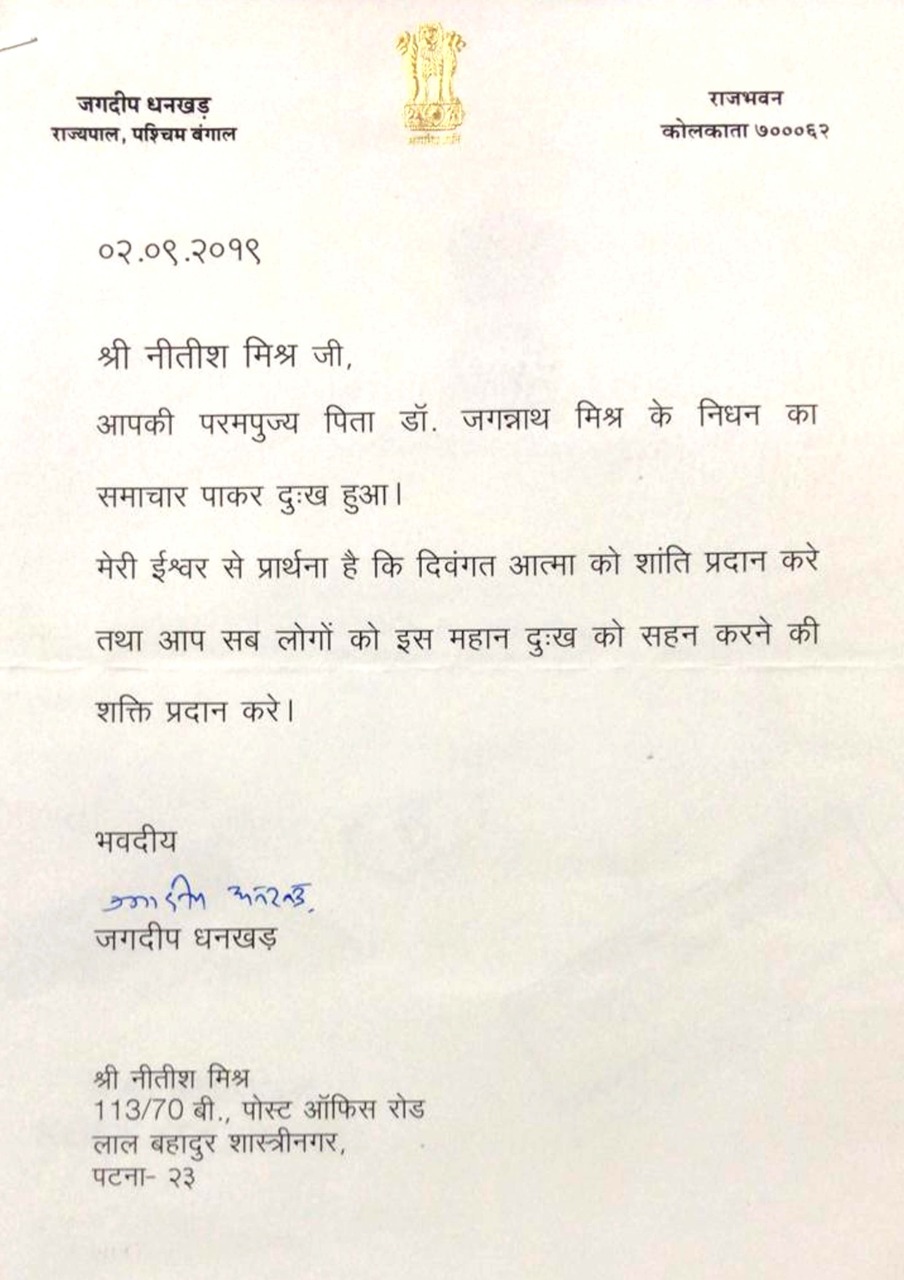 जगदीप धनखड़
राज्यपाल, पश्चिम बंगाल
राजभवन
कोलकाता ७०००६२
०२.०९.२०१९
श्री नीतीश मिश्र जी,
आपकी परमपुज्य पिता डॉ. जगन्नाथ मिश्र के निधन का
समाचार पाकर दुःख हुआ।
मेरी ईश्वर से प्रार्थना है कि दिवंगत आत्मा को शांति प्रदान करे
तथा आप सब लोगों को इस महान दुःख को सहन करने की
शक्ति प्रदान करे।
भवदीय
जगदीप धनखड़
जगदीप धनखड़
श्री नीतीश मिश्र
113/70 बी., पोस्ट ऑफिस रोड
लाल बहादुर शास्त्रीनगर,
पटना- २३